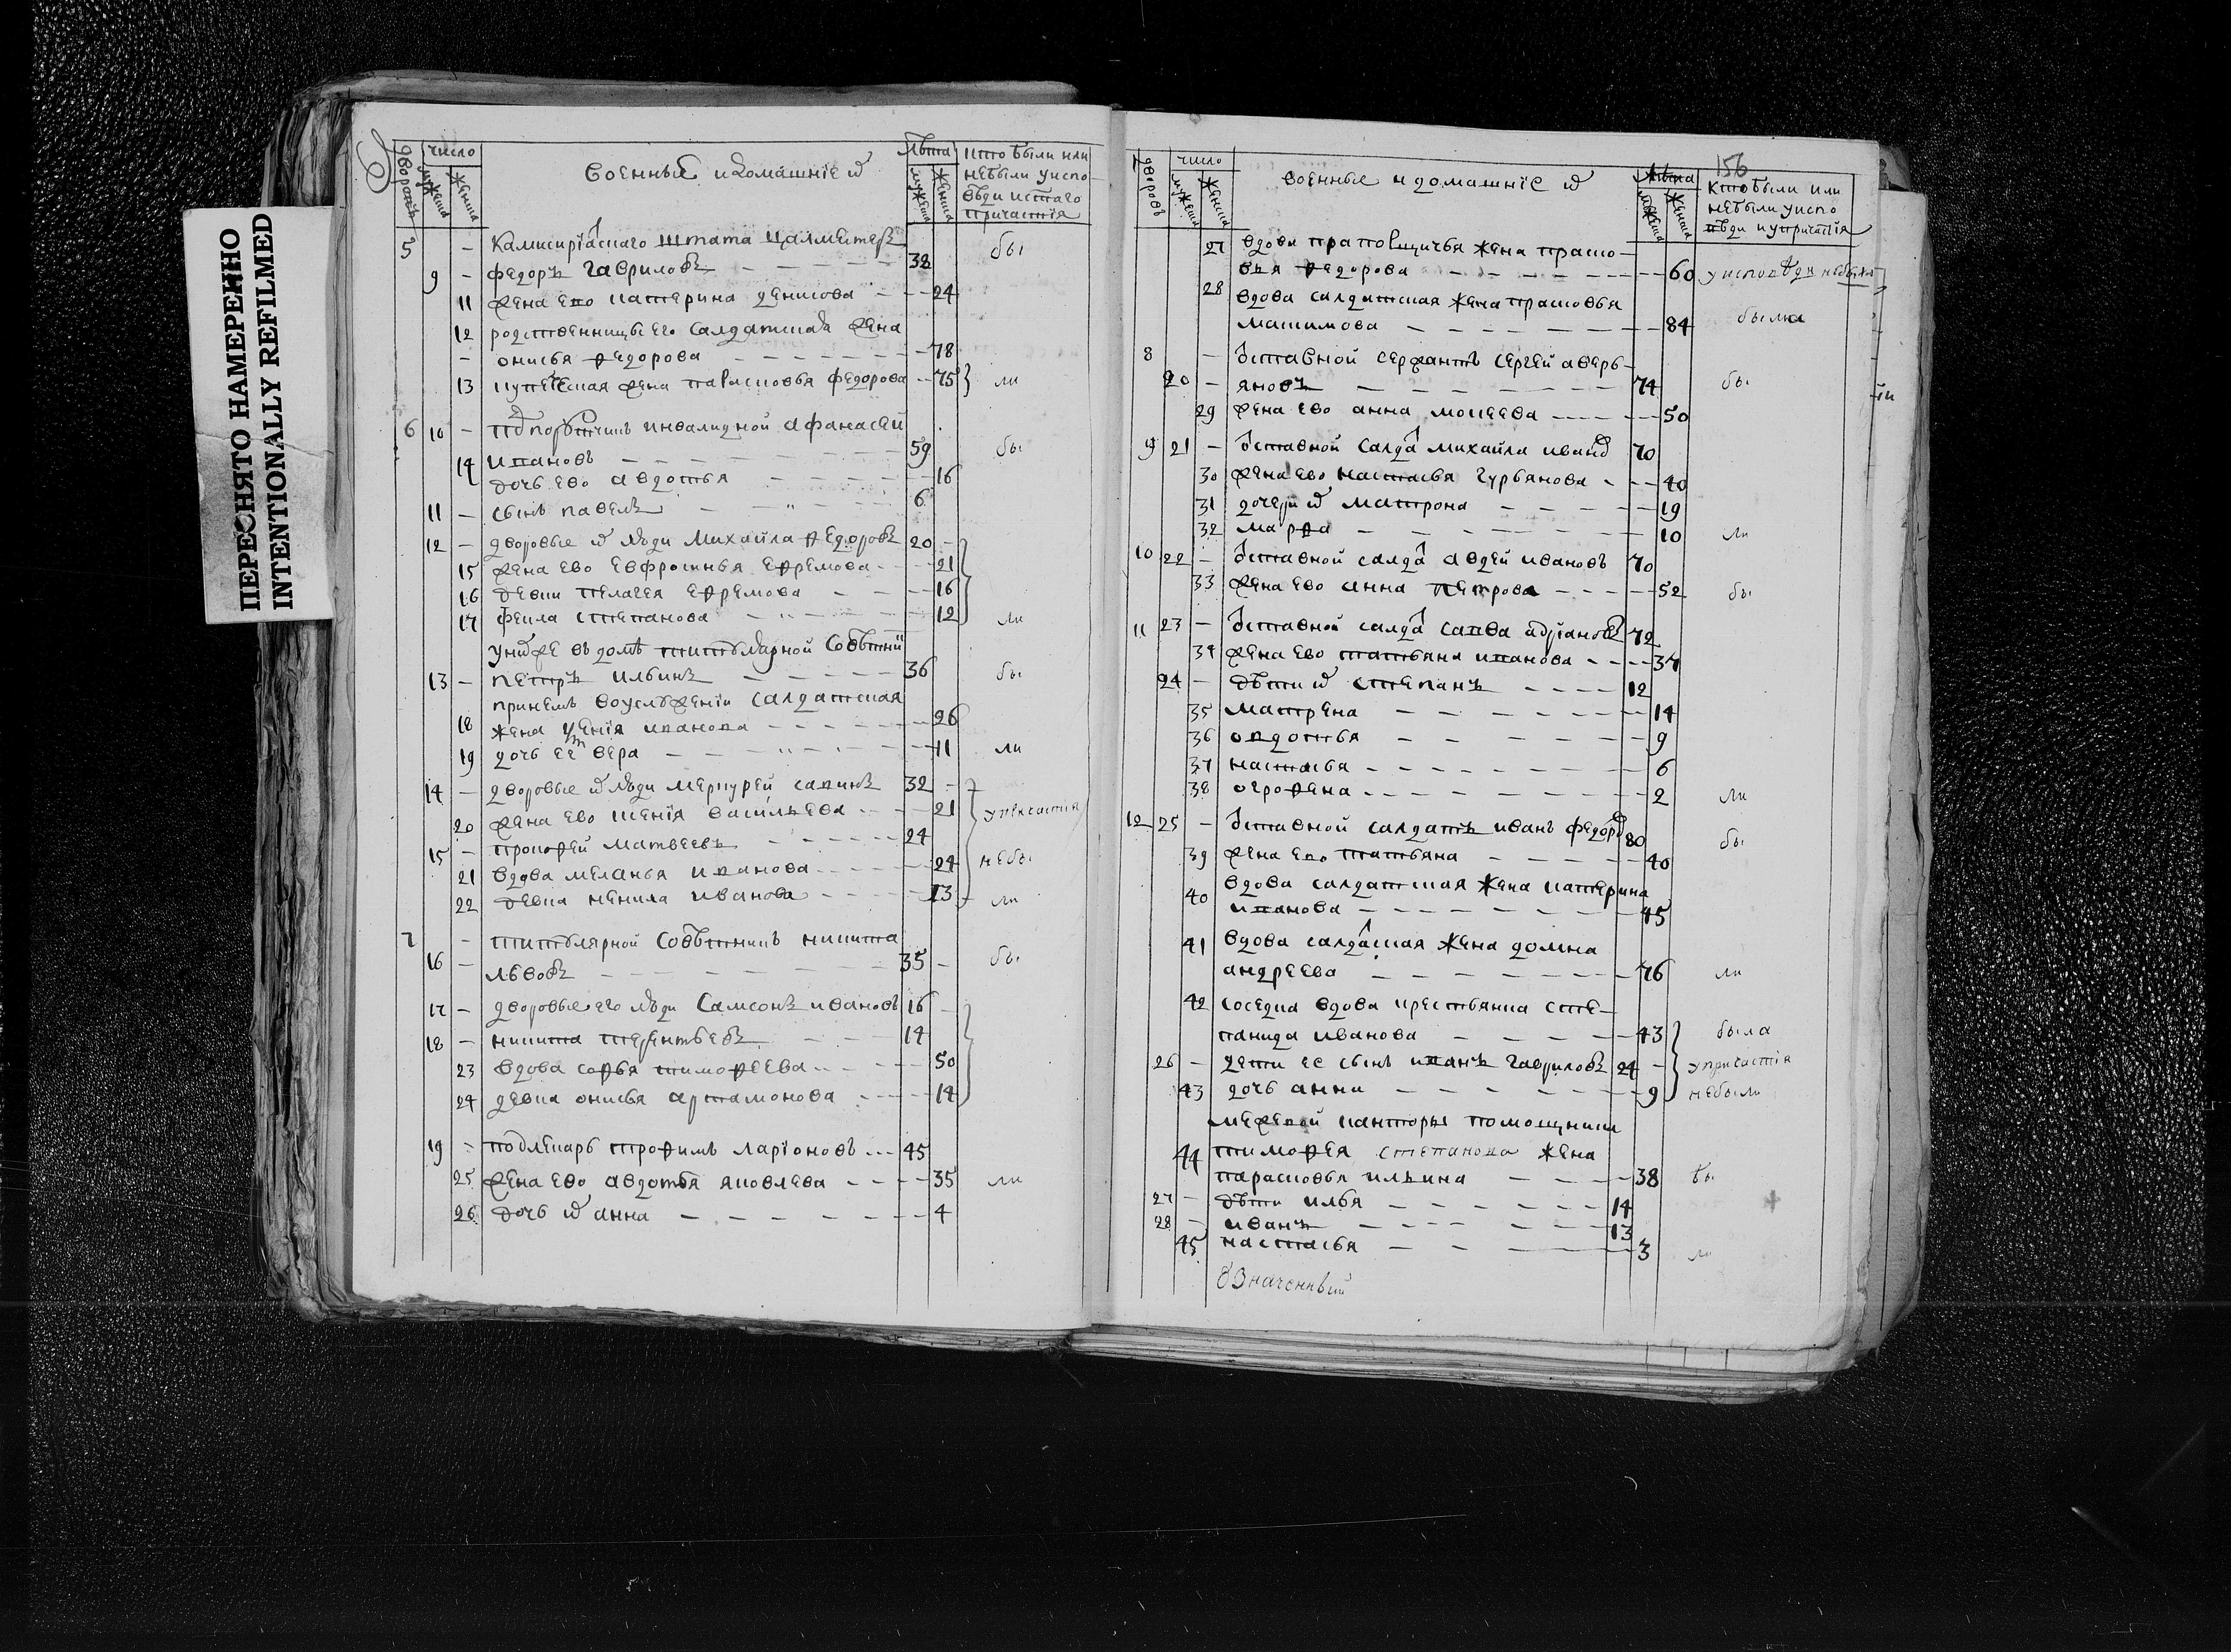 ПЕРЕСНЯТО НАМЕРЕННО
INTENTIONALLY REFILMED
дворовъ
число
мужеска
женска
военные и домашніе их
Лѣта
мужеска
женска
кто были или
небыли уиспо
вѣди истаго
причастія
5 — камисиріатскаго штата цалмейстеръ
9 — федоръ гавриловъ — 38 бы
11 жена ево катерина денисова — 24
12 родственницы его салдатская жена
— онисья федорова — 78
13 жена парасковья федорова — 75 ли
6 10 — подпоручикъ инвалидной афанасей
ивановъ — 59 бы
14 дочь ево авдотья — 16
11 — сынъ павелъ — 6
12 — дворовые их люди михайла федоровъ 20 —
15 жена ево евфросинья ефремова — 21
16 девки пелагея ефремова — 16
17 фекла степанова — 12 ли
уних же въ домѣ титулярной совѣтникъ
13 — петръ ильинъ — 36 бы
принемъ воуслуженіи салдатская
18 жена ксенія иванова — 26
19 дочь ее вера — 11 ли
14 — дворовые их люди меркурей савинъ 32 —
20 жена ево ксенія васильева — 21 упричастия
15 — прокофей матвеевъ — 24
21 вдова меланья иванова — 24 небы
22 девка ненила иванова — 13 ли
7 — титулярной совѣтникъ никита
16 — львовъ — 35 — бы
17 — дворовые его люди самсонъ ивановъ 16 —
18 — никита терентьевъ — 14
23 вдова софья тимофеева — 50
24 девка онисья артамонова — 14
19 — подлѣкарь трофимъ ларіоновъ — 45
25 жена ево авдотья яковлева — 35 ли
26 дочь их анна — 4
156
дворовъ
число
мужеска
женска
военные и домашніе их
Лѣта
мужеска
женска
кто были или
небыли уиспо
вѣди иупричастія
27 вдова прапорщичья жена праско-
вья федорова — 60 уисповѣди небыла
28 вдова салдатская жена прасковья
максимова — 84 была
8 — отставной сержантъ сергей аверь-
20 — яновъ — 74 бы
29 жена ево анна моисеева — 50
9 21 — отставной салдат михайла иванов 70
30 жена ево настасья гурьянова — 40
31 дочери их матрона — 19
32 марфа — 10 ли
10 22 — отставной салдат авдей ивановъ 70
33 жена ево анна петрова — 52 бы
11 23 — отставной салдат савва адріановъ 72
34 жена ево татьяна иванова — 37
24 — дѣти их степанъ — 12
35 матрена — 14
36 овдотья — 9
37 настасья — 6
38 огрофена — 2 ли
12 25 — отставной салдатъ иванъ федоров 80 бы
39 жена ево татьяна — 40
40 вдова салдатская жена катерина
иванова — 45
41 вдова салдатская жена домна
андреева — 76 ли
42 соседка вдова крестьянка сте-
панида иванова — 43 была
26 — дети ее сынъ иванъ гавриловъ 24 — упричастія
43 дочь анна — 9 небыли
межевой канторы помощника
44 тимофея степанова жена
парасковья ильина — 38 бы
27 — дѣти илья — 14
28 — иванъ — 13
45 настасья — 3 ли
означенный